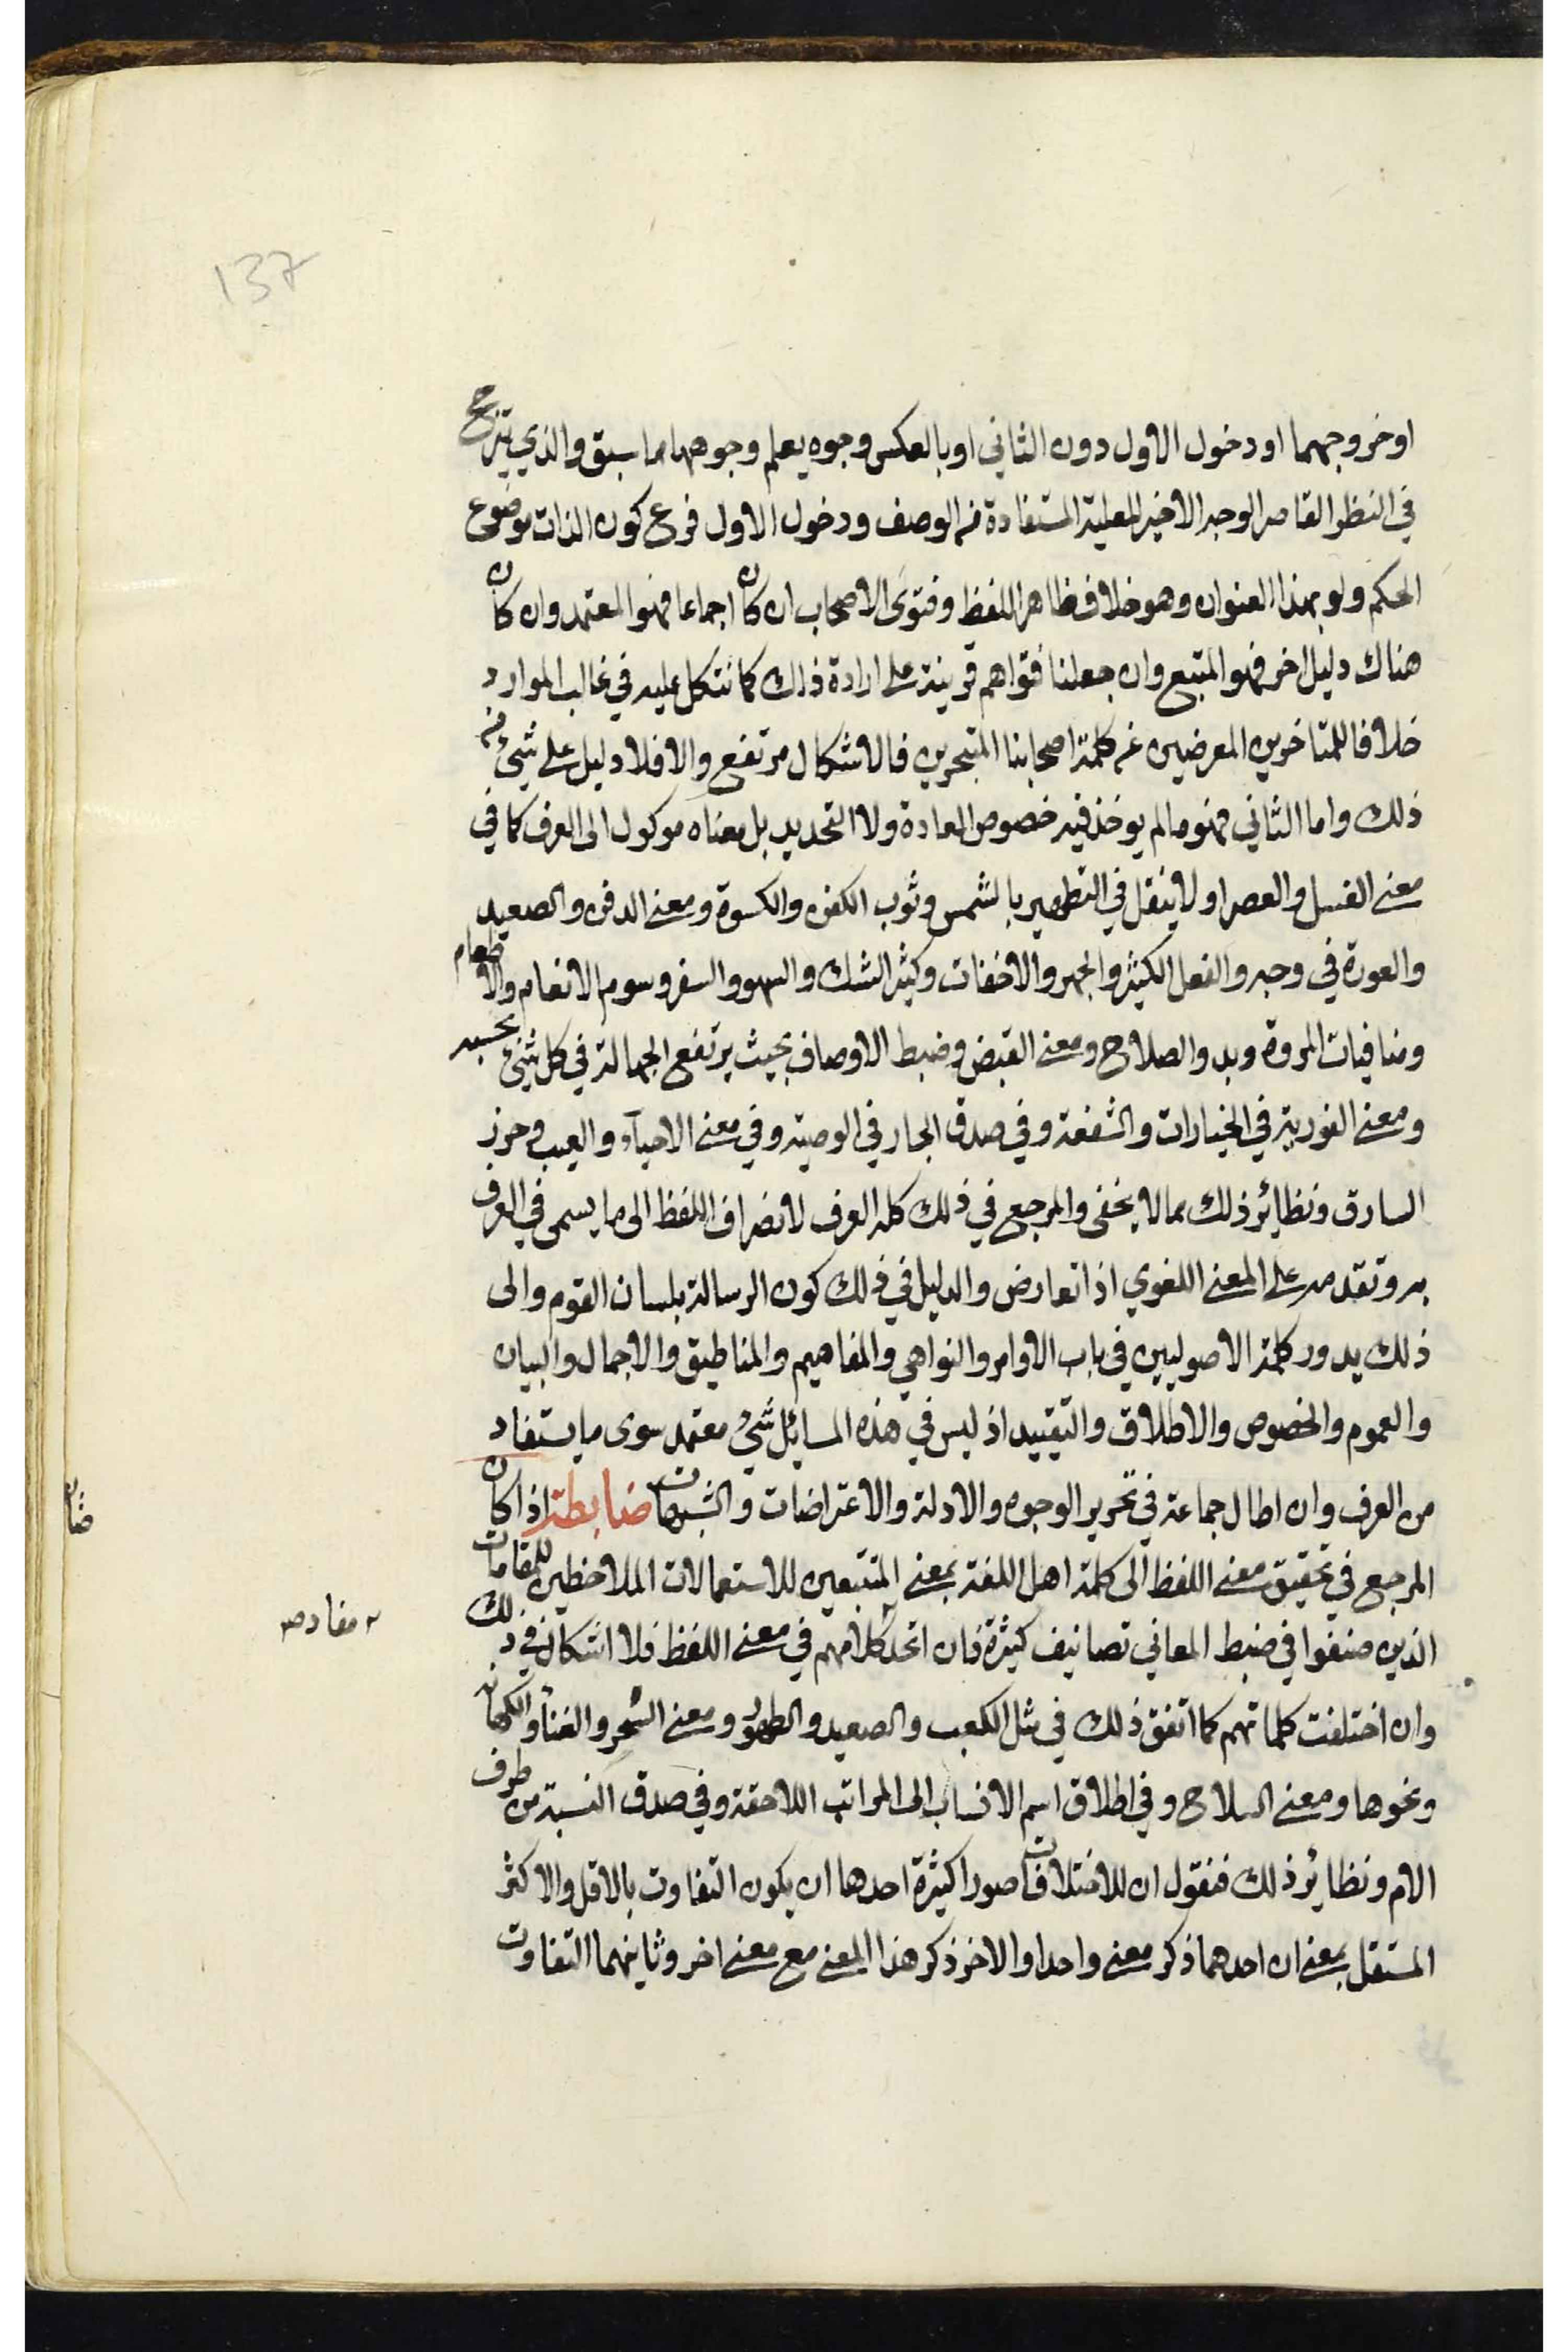 137
او خروجهما او دخول الاول دون الثاني او بالعكس وجوه يعلم وجوهها مما سبق والذي يترجح
في النظر القاصر الوجه الاخير للعلية المستفادة من الوصف ودخول الاول فرع كون الذات موضوع
الحكم ولو بهذا العنوان وهو خلاف ظاهر اللفظ وفتوى الاصحاب ان كان اجماعا فهو المعتمد وان كان
هناك دليل اخر فهو المتبع وان جعلنا فتواهم قرينة على ارادة ذلك كما نتكل عليه في غالب الموارد
خلافا للمتاخرين المعرضين عن كلمة اصحابنا المتبحرين فالاشكال مرتفع والا فلا دليل على شئ من
ذلك واما الثاني فهو ما لم يوخذ فيه خصوص العادة ولا التحديد بل معناه موكول الى العرف كما في
معنى الغسل والعصر او لا ينقل في التطهير بالشمس وثوب الكفن والكسوة ومعنى الدفن والصعيد
والعورة في وجه والفعل الكثير والجهر والاخفات وكثير الشك والسهو والسفر وسوم الانعام والاطعام
ومنافيات المروة وبدو الصلاح ومعنى القبض وضبط الاوصاف بحيث يرتفع الجهالة في كل شئ بحسبه
ومعنى الفورية في الخيارات والشفعة وفي صدق الجار في الوصية وفي معنى الاحياء والعيب وحرز
السارق ونظاير ذلك مما لا يخفى والمرجع في ذلك كله العرف لانصراف اللفظ الى ما يسمى في العرف
به وتقدمه على المعنى اللغوي اذا تعارض والدليل في ذلك كون الرسالة بلسان القوم والى
ذلك يدور كلمة الاصوليين في باب الاوامر والنواهي والمفاهيم والمناطيق والاجمال والبيان
والعموم والخصوص والاطلاق والتقييد اذ ليس في هذه المسايل شئ معتمد سوى ما يستفاد
من العرف وان اطال جماعة في تحرير الوجوه والادلة والاعتراضات والشبهات ضابطة اذا كان
المرجع في تحقيق معنى اللفظ الى كلمة اهل اللغة بمعنى المتتبعين للاستعمالات الملاحظين للمقامات
الذين صنفوا في ضبط المعاني تصانيف كثيرة فان اتحد كلامهم في معنى اللفظ فلا اشكال في ذلك
وان اختلفت كلماتهم كما اتفق ذلك في مثل الكعب والصعيد والطهور ومعنى السحر والغناء والكهانة
ونحوها ومعنى السلاح وفي اطلاق اسم الانساب الى المراتب اللاحقة وفي صدق النسبة من طرف
الام ونظاير ذلك فنقول ان للاختلافات صورا كثيرة احدها ان يكون التفاوت بالاقل والاكثر
المستقل بمعنى ان احدهما ذكر معنى واحدا والاخر ذكر هذا المعنى مع معنى اخر وثانيهما التفاوت
مفاد